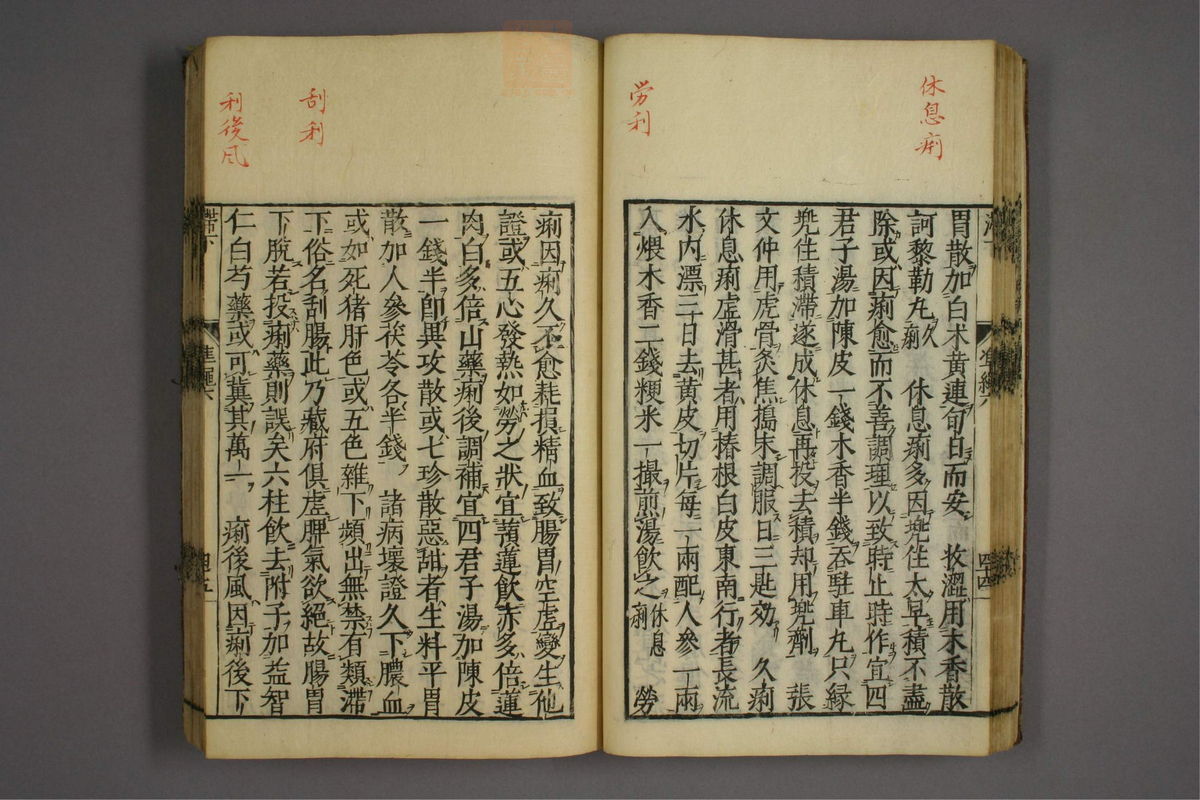 休息痢
労利
胃散加白朮黄連旬日而安 收澀用木香散
訶黎勒丸久痢 休息痢多因兜住太早積不盡
除或因痢愈而不善調理以致時止時作宜四
君子湯加陳皮一錢木香半錢吞駐車丸只縁
兜住積滯遂成休息再投去積却用兜劑 張
文仲用虎骨炙焦搗末調服日三匙效 久痢
休息痢虛滑甚者用椿根白皮東南行者長流
水内漂三日去黄皮切片每一兩配人參一兩
入煨木香二錢粳米一撮煎湯飲之休息痢 勞
四四
刮利
利後风
痢因痢久不愈耗損精血致腸胃空虛變生他
證或五心發熱如勞之狀宜蓮飲赤多倍蓮
肉白多倍山藥痢後調補宜四君子湯加陳皮
一錢半卽異攻散或七珍散惡甜者生料平胃
散加人參茯苓各半錢 諸病壞證久下膿血
或如死猪肝色或五色雜下頻出無禁有類滯
下俗名刮腸此乃藏府俱虛脾氣欲絕故腸胃
下脫若投痢藥則誤矣六柱飲去附子加益智
仁白芍藥或可冀其萬一 痢後風因痢後下
滯下
四五